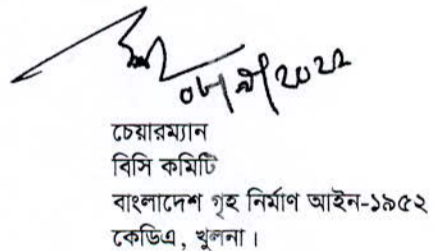 ০৮/৯/২০২২
চেয়ারম্যান
বিসি কমিটি
বাংলাদেশ গৃহ নির্মাণ আইন-১৯৫২
কেডিএ, খুলনা।